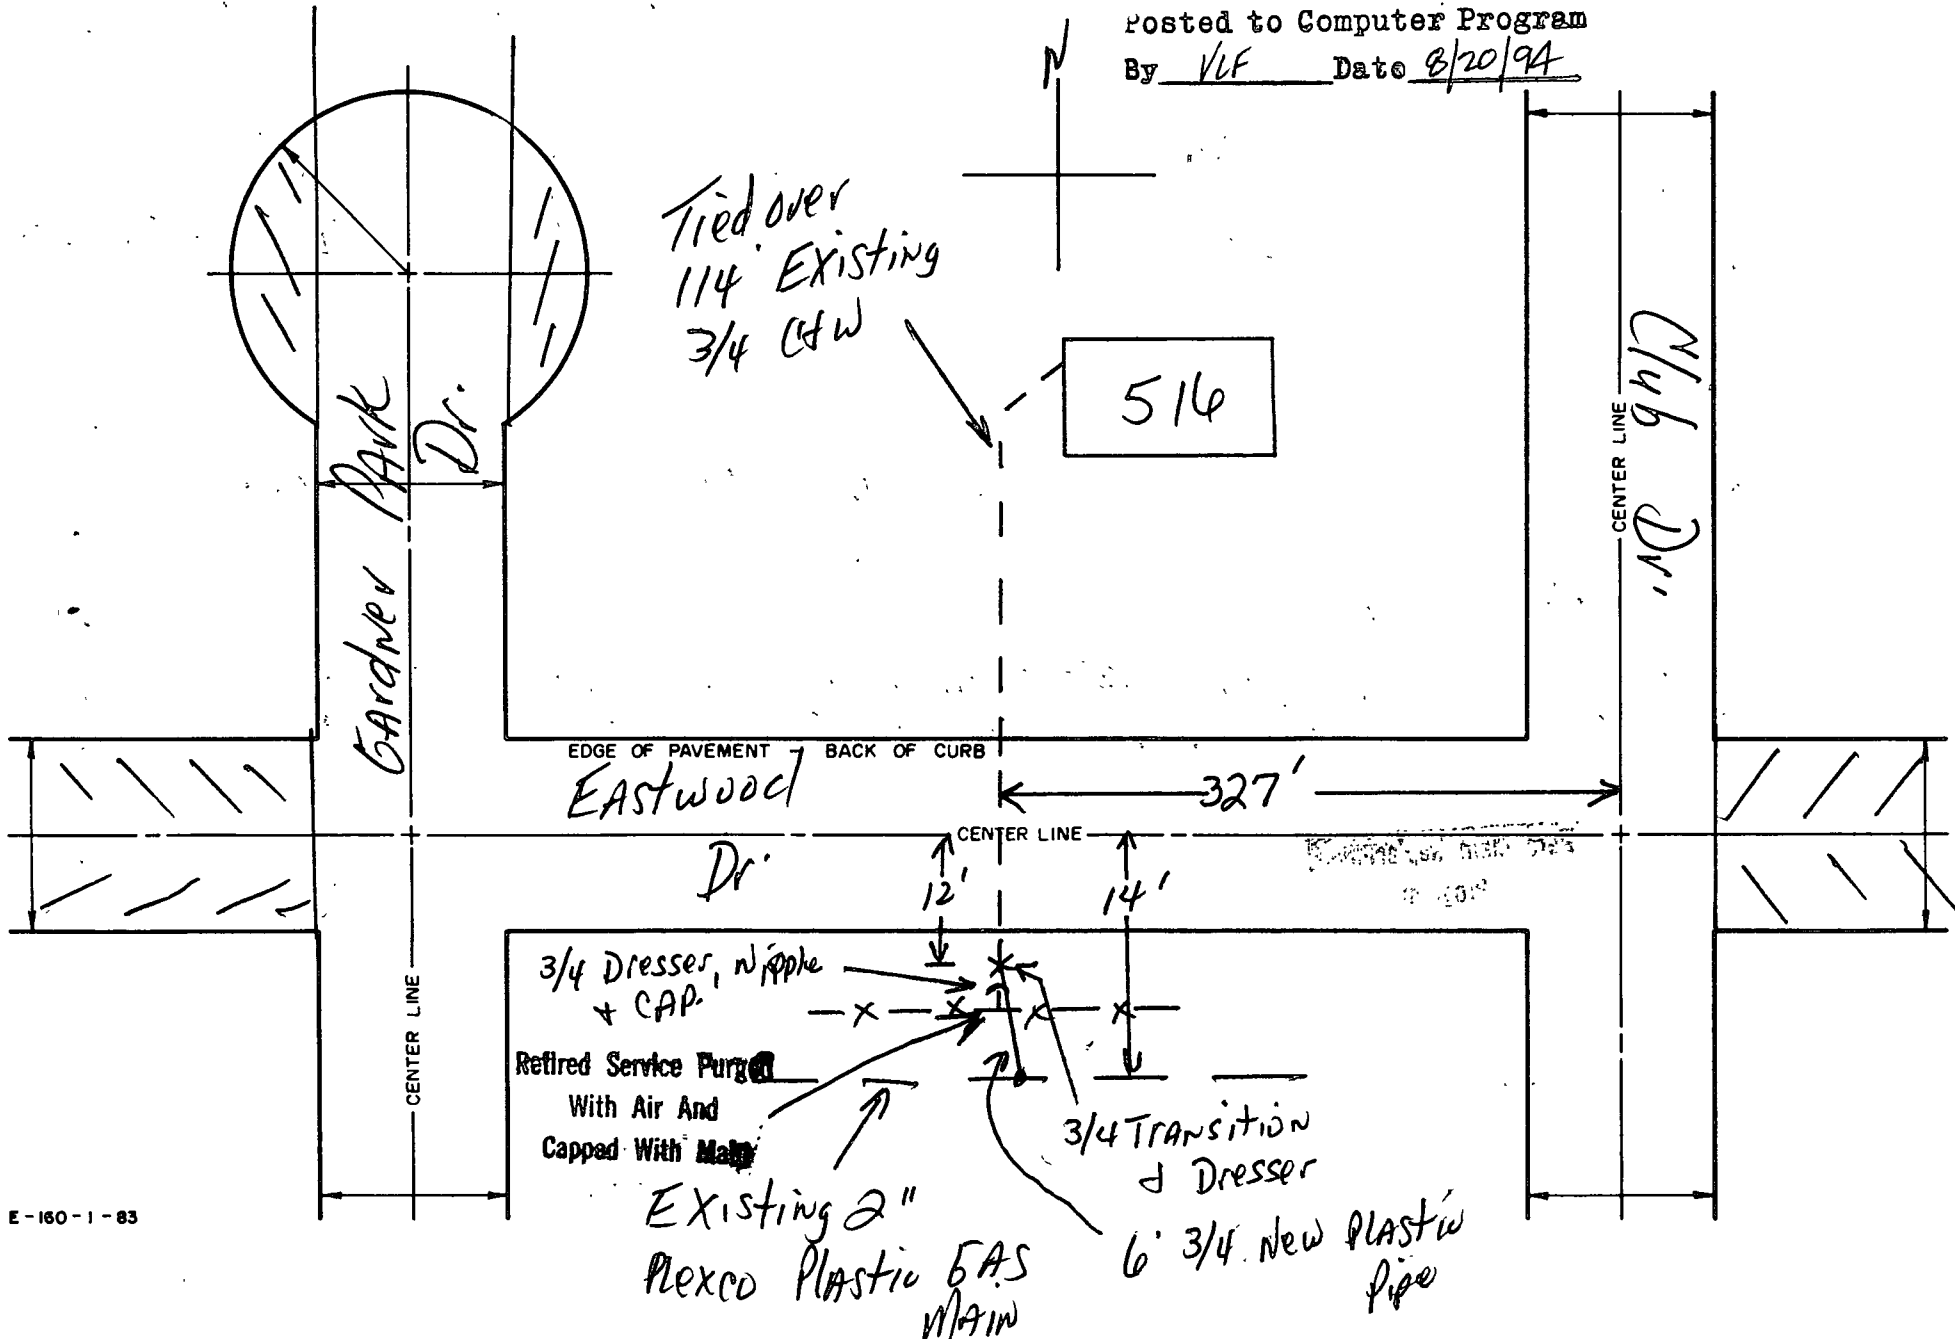 Posted to Computer Program
By VLF Date 8/20/94
N
Tied over
114' Existing
3/4 C&W
516
Gardner Park
Dr.
Club Dr.
CENTER LINE
EDGE OF PAVEMENT - BACK OF CURB
Eastwood
327'
CENTER LINE
Dr.
12'
14'
3/4 Dresser, Nipple
& CAP.
CENTER LINE
Retired Service Purged
With Air And
Capped With Main
3/4 Transition
& Dresser
Existing 2"
Plexco Plastic GAS
Main
6' 3/4 New Plastic
Pipe
E-160-1-83